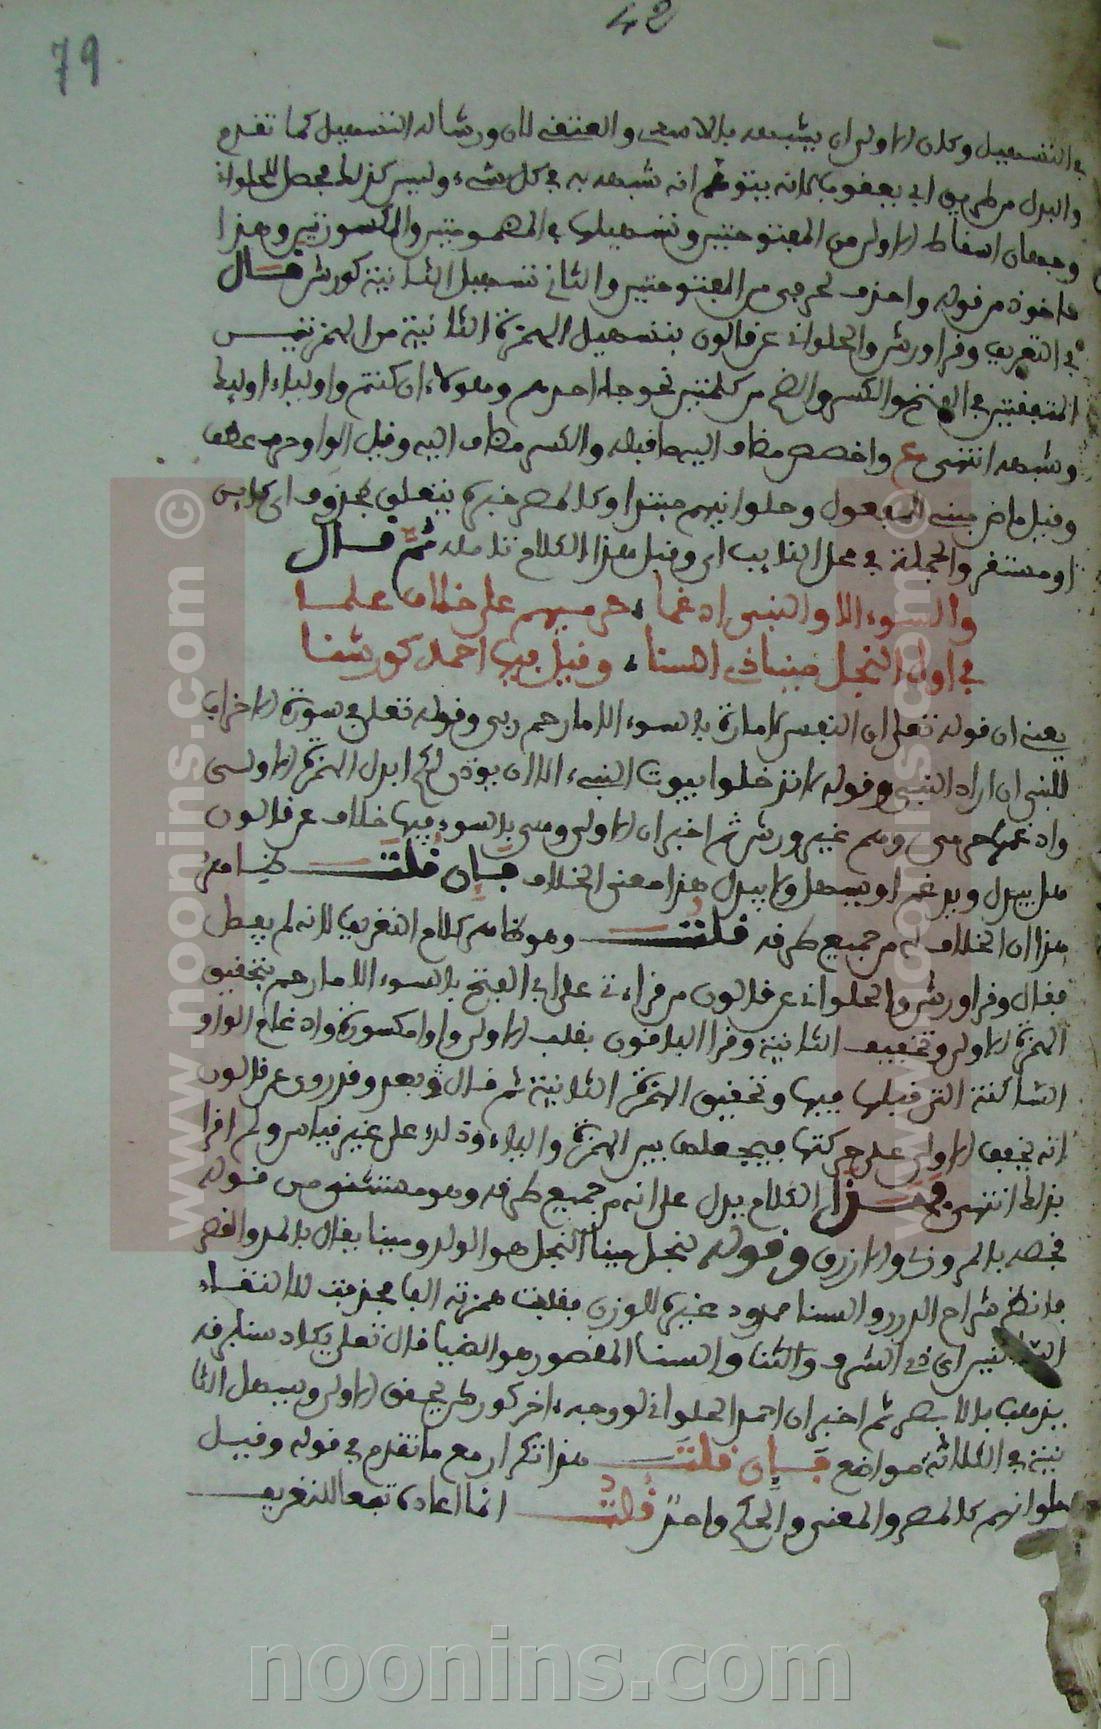 42
79
في التسهيل وكان الاولى ان يشبهه بالاصبهاني والعتقي لان ورشا له التسهيل كما تقدم
والبدل من طريق ابي يعقوب لانه يتوهم انه شبهه به في كل شيء وليس كذلك فحصل للحلواني
وجهان اسقاط الاولى من المفتوحتين وتسهيلها في المضمومتين والمكسورتين وهذا
ماخوذ من قوله واحذف لحرمي من المفتوحتين والثاني تسهيل الثانية كورش قال
في التعريف وقرا ورش والحلواني عن قالون بتسهيل الهمزة الثانية من الهمزتين
المتفقتين في الفتح والكسر والضم من كلمتين نحو جاء احدهم وهؤلاء ان كنتم واولياء اولئك
وشبهه انتهى واخصص مضاف اليها قبله والكسر مضاف اليه وقبل الواو حرف عطف
وقيل ماض مبني للمفعول وحلوانيهم مبتدا وكالمصر خبره يتعلق بمحذوف اي كاين
او مستقر والجملة في محل النايب اي وقيل هذا الكلام تامله ثم قال
والسوء الا والنبي ادغما حرميهم على خلاف علما
في اول النجل مينا ذي السنا وقيل فيها احمد كورشنا
يعني ان قوله تعلى ان النفس لامارة بالسوء الا ما رحم ربي وقوله تعلى في سورة الاحزاب
للنبي ان اراد النبي وقوله لا تدخلوا بيوت النبي الا ان يوذن لكم ابدل الهمزة الاولى
وادغمها حرمي وهم غير ورش ثم اخبر ان الاولى وهي بالسوء فيها خلاف عن قالون
هل يبدل ويدغم او يسهل ولا يبدل هذا معنى الخلاف فإن قلت ظاهر
هذا ان الخلاف له من جميع طرقه قلت وهو ظاهر كلام التعريف لانه لم يفصل
فقال وقرا ورش والحلواني عن قالون من قراءتي على ابي الفتح بالسوء الا ما رحم بتحقيق
الهمزة الاولى وتخفيف الثانية وقرا الباقون بقلب الاولى واوا مكسورة وادغام الواو
الساكنة التي قبلها فيها وتحقيق الهمزة الثانية ثم قال وبعد وقد روى عن قالون
انه يخفف الاولى على حركتها فيجعلها بين الهمزة والياء وذلك على غير قياس ولم اقرا
بذلك انتهى فهذا الكلام يدل على انه من جميع طرقه وهو مستثنى من قوله
فخصه بالمروزي والازرق وقوله لنجل مينا النجل هو الولد ومينا يقال بالمد والقصر
فانظر شراح الدرر والسنا ممدود غيره للوزن فقلبت همزته الفا فحذفت لالتقاء
الساكنين اي ذي الشرف والثنا والسنا المقصور هو الضيا قال تعلى يكاد سنا برقه
يذهب بالابصر ثم اخبر ان احمد الحلواني له وجه اخر كورش يحقق الاولى ويسهل الثا
نية في الثلاثة مواضع فإن قلت هذا تكرار مع ما تقدم في قوله وقيل
حلوانيهم كالمصر والمعنى والحكم واحد قلت انما اعاده تبعا للتعريف
www.noonins.com ©
www.noonins.com ©
noonins.com